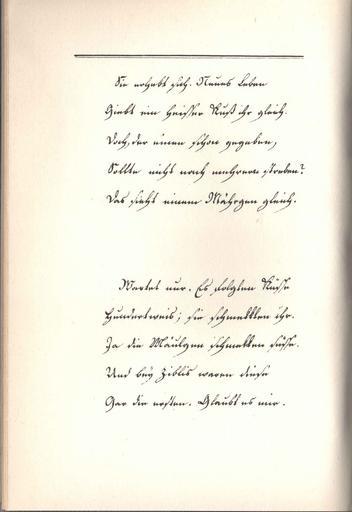 Sie erhebt sich. Neues Leben
Giebt ein heisser Kuß ihr gleich.
Doch, der einen schon gegeben,
Sollte nicht nach mehrern streben?
Das sieht einem Mährgen gleich.
Wartet nur. Es folgten Küsse
Hundertweis; sie schmekkten ihr.
Ja die Mäulgen schmekken süsse.
Und bey Ziblis waren diese
Gar die ersten. Glaubt es mir.